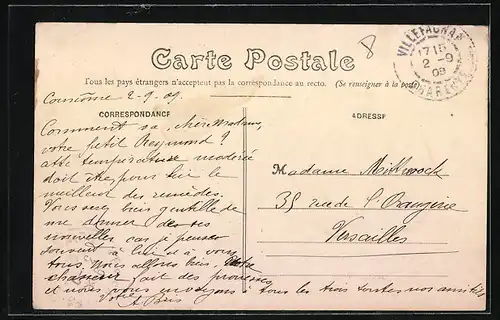 Carte Postale
8
VILLEFAGNAN
17 15
2 - 9
09
CHARENTE
Tous les pays étrangers n'acceptent pas la correspondance au recto. (Se renseigner à la poste)
Courcôme 2-9-09.
CORRESPONDANCE
ADRESSE
Comment va, chère Madame,
votre petit Raymond?
cette température modérée
doit être pour lui le
meilleur des remèdes.
Vous serez bien gentille de
me donner de ses
nouvelles car je pense
souvent à lui et à vous
tous. Nous allons bien
chasseur fait des prouesses
et nous vous envoyons tous les trois toutes nos amitiés
Votre
Madame
35 rue de l'Orangerie
Versailles